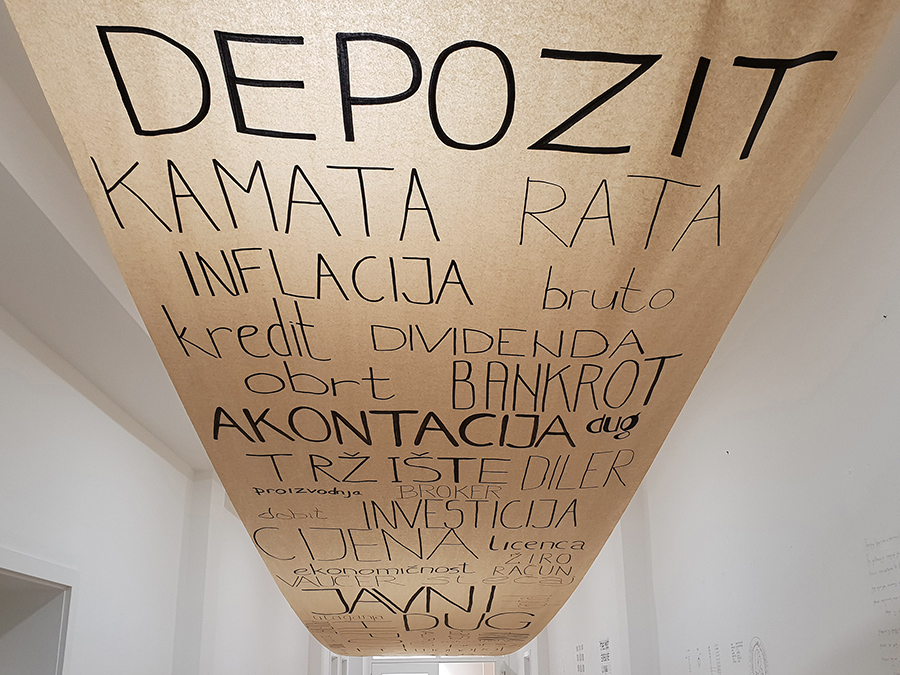 DEPOZIT
KAMATA RATA
INFLACIJA bruto
kredit DIVIDENDA
obrt BANKROT
AKONTACIJA dug
TRŽIŠTE DILER
proizvodnja BROKER
dobit INVESTICIJA
CIJENA licenca
ŽIRO
ekonomičnost RAČUN
VAUČER stečaj
JAVNI
ulaganja DUG